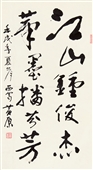 江山鍾俊杰
筆墨播芬芳
壬戌年夏